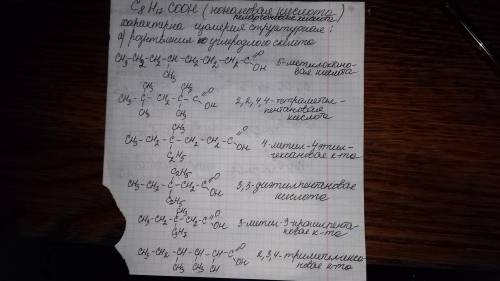 C₈H₁₇COOH (нонановая кислота)
пеларгоновая кислота
характерна изомерия структурная:
а) разветвления углеродного скелета
CH₃-CH₂-CH₂-CH-CH₂-CH₂-CH₂-C=O OH 5-метилоктано-
CH₃ вовая кислота
CH₃ CH₃
CH₃-C-CH₂-C-C=O OH 2,2,4,4-тетраметил-
CH₃ CH₃ пентановая
кислота
CH₃
CH₃-CH₂-C-CH₂-CH₂-C=O OH 4-метил-4этил-
C₂H₅ гексановая к-та
C₂H₅
CH₃-CH₂-C-CH₂-C=O OH 3,3-диэтилпентановая
C₂H₅ кислота
CH₃
CH₃-CH₂-C-CH₂-C=O OH 3-метил-3-пропилпента-
C₃H₇ новая к-та
CH₃-CH₂-CH-CH-CH-C=O OH 2,3,4-триметилгекса-
CH₃ CH₃ CH новая к-та